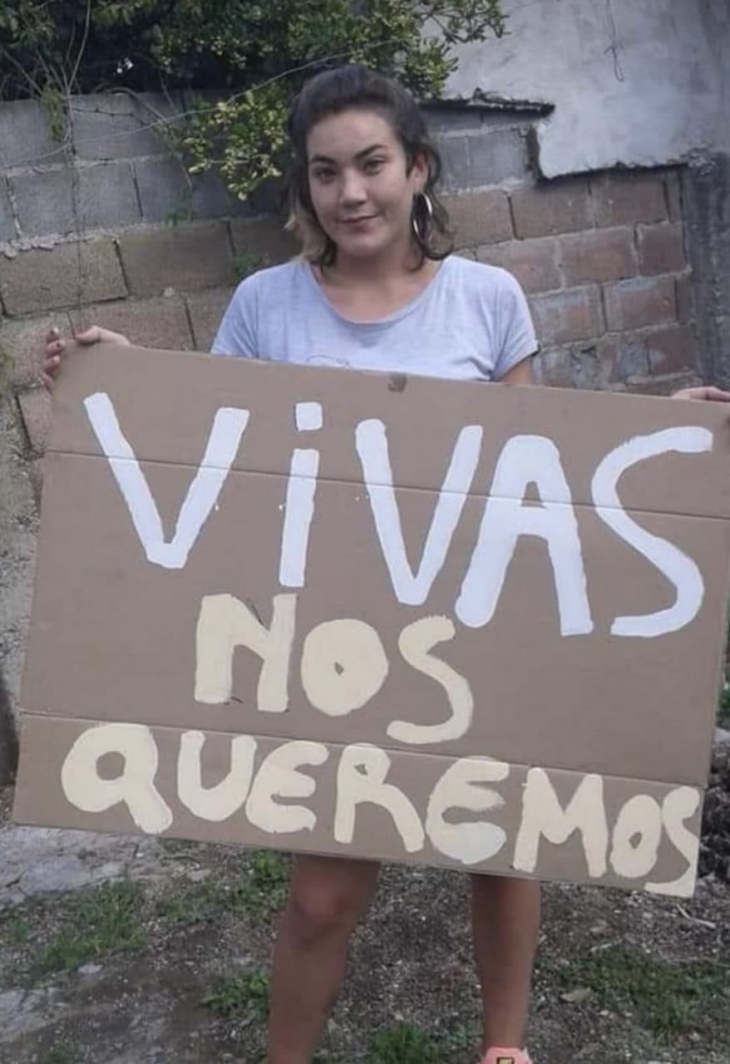 ViVAS
NOS
QUEREMOS